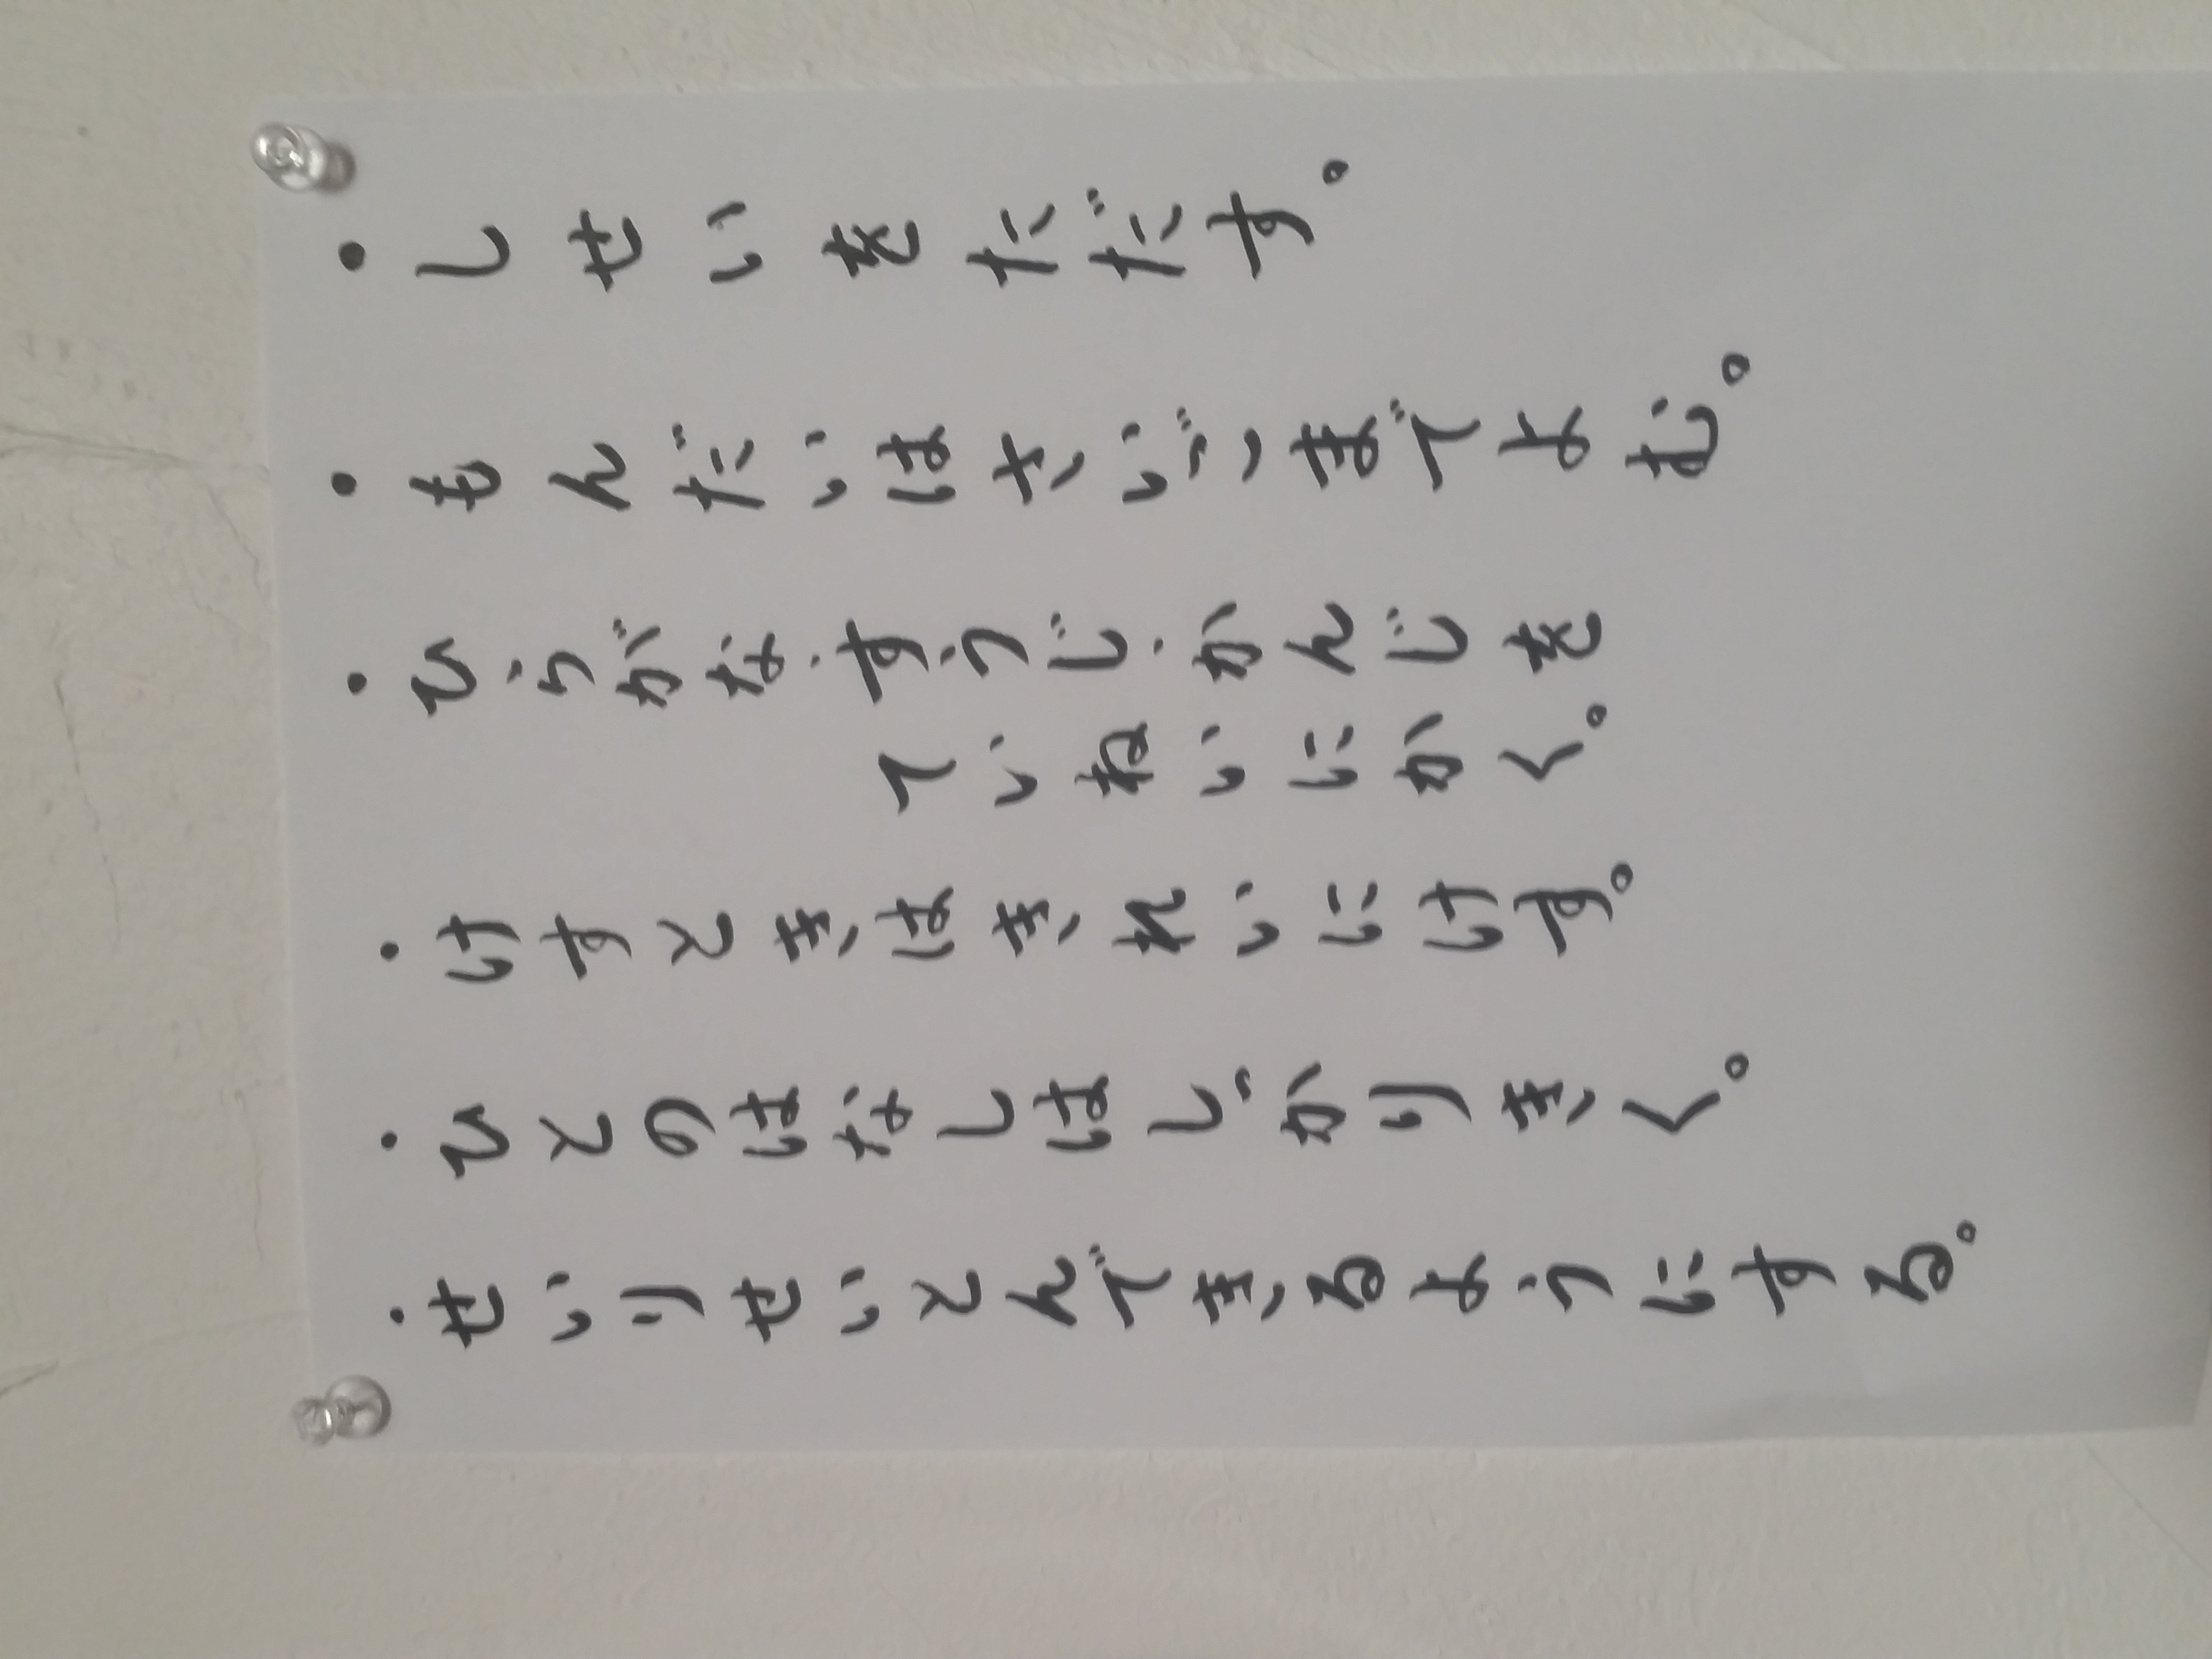 ・しせいをただす。
・もんだいはさいごまでよむ。
・ひらがな・すうじ・かんじを
ていねいにかく。
・けすときはきれいにけす。
・ひとのはなしはしっかりきく。
・せいりせいとんできるようにする。